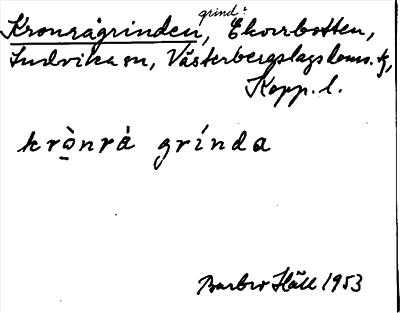 grind:
Kronrågrinden, Ekorrbotten,
Ludvika sn, Västerbergslags doms. tg,
Kopp. l.
kro̱̍nrá grínda
Barbro Häll 1953